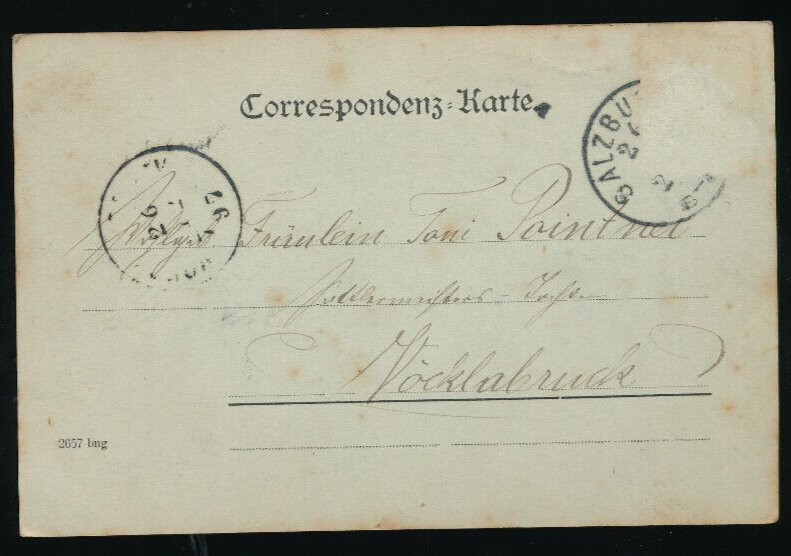 Correspondenz-Karte
SALZBU
Fräulein Toni Pointner
Sattlermeisters-Tochter
Vöcklabruck
2657 bng